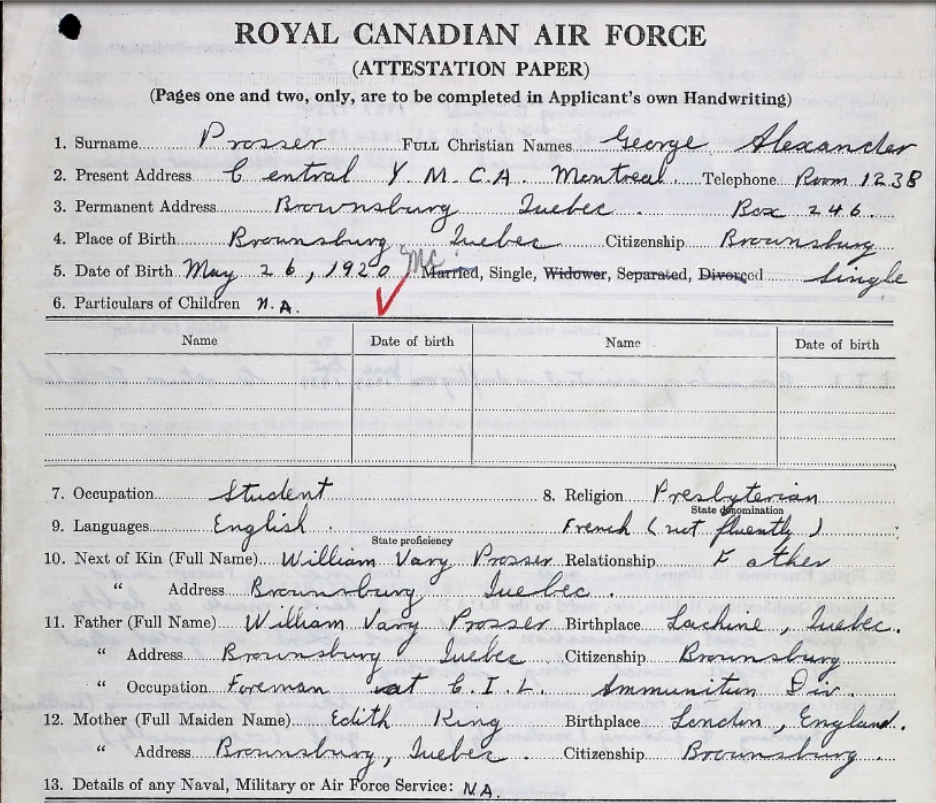 ROYAL CANADIAN AIR FORCE
(ATTESTATION PAPER)
(Pages one and two, only, are to be completed in Applicant's own Handwriting)
1. Surname Prosser FULL Christian Names George Alexander
2. Present Address Central Y.M.C.A. Montreal Telephone Room 1238
3. Permanent Address Brownsburg Quebec. Box 246.
4. Place of Birth Brownsburg Quebec Citizenship Brownsburg
5. Date of Birth May 26, 1920 Married, Single, Widower, Separated, Divorced Single
6. Particulars of Children N.A.
Name Date of birth Name Date of birth
7. Occupation Student 8. Religion Presbyterian
State denomination
9. Languages English. French (not fluently)
State proficiency
10. Next of Kin (Full Name) William Vary Prosser Relationship Father
" Address Brownsburg Quebec.
11. Father (Full Name) William Vary Prosser Birthplace Lachine, Quebec.
" Address Brownsburg Quebec Citizenship Brownsburg
" Occupation Foreman at C.I.L. Ammunition Div.
12. Mother (Full Maiden Name) Edith King Birthplace London, England.
" Address Brownsburg, Quebec. Citizenship Brownsburg.
13. Details of any Naval, Military or Air Force Service: N.A.